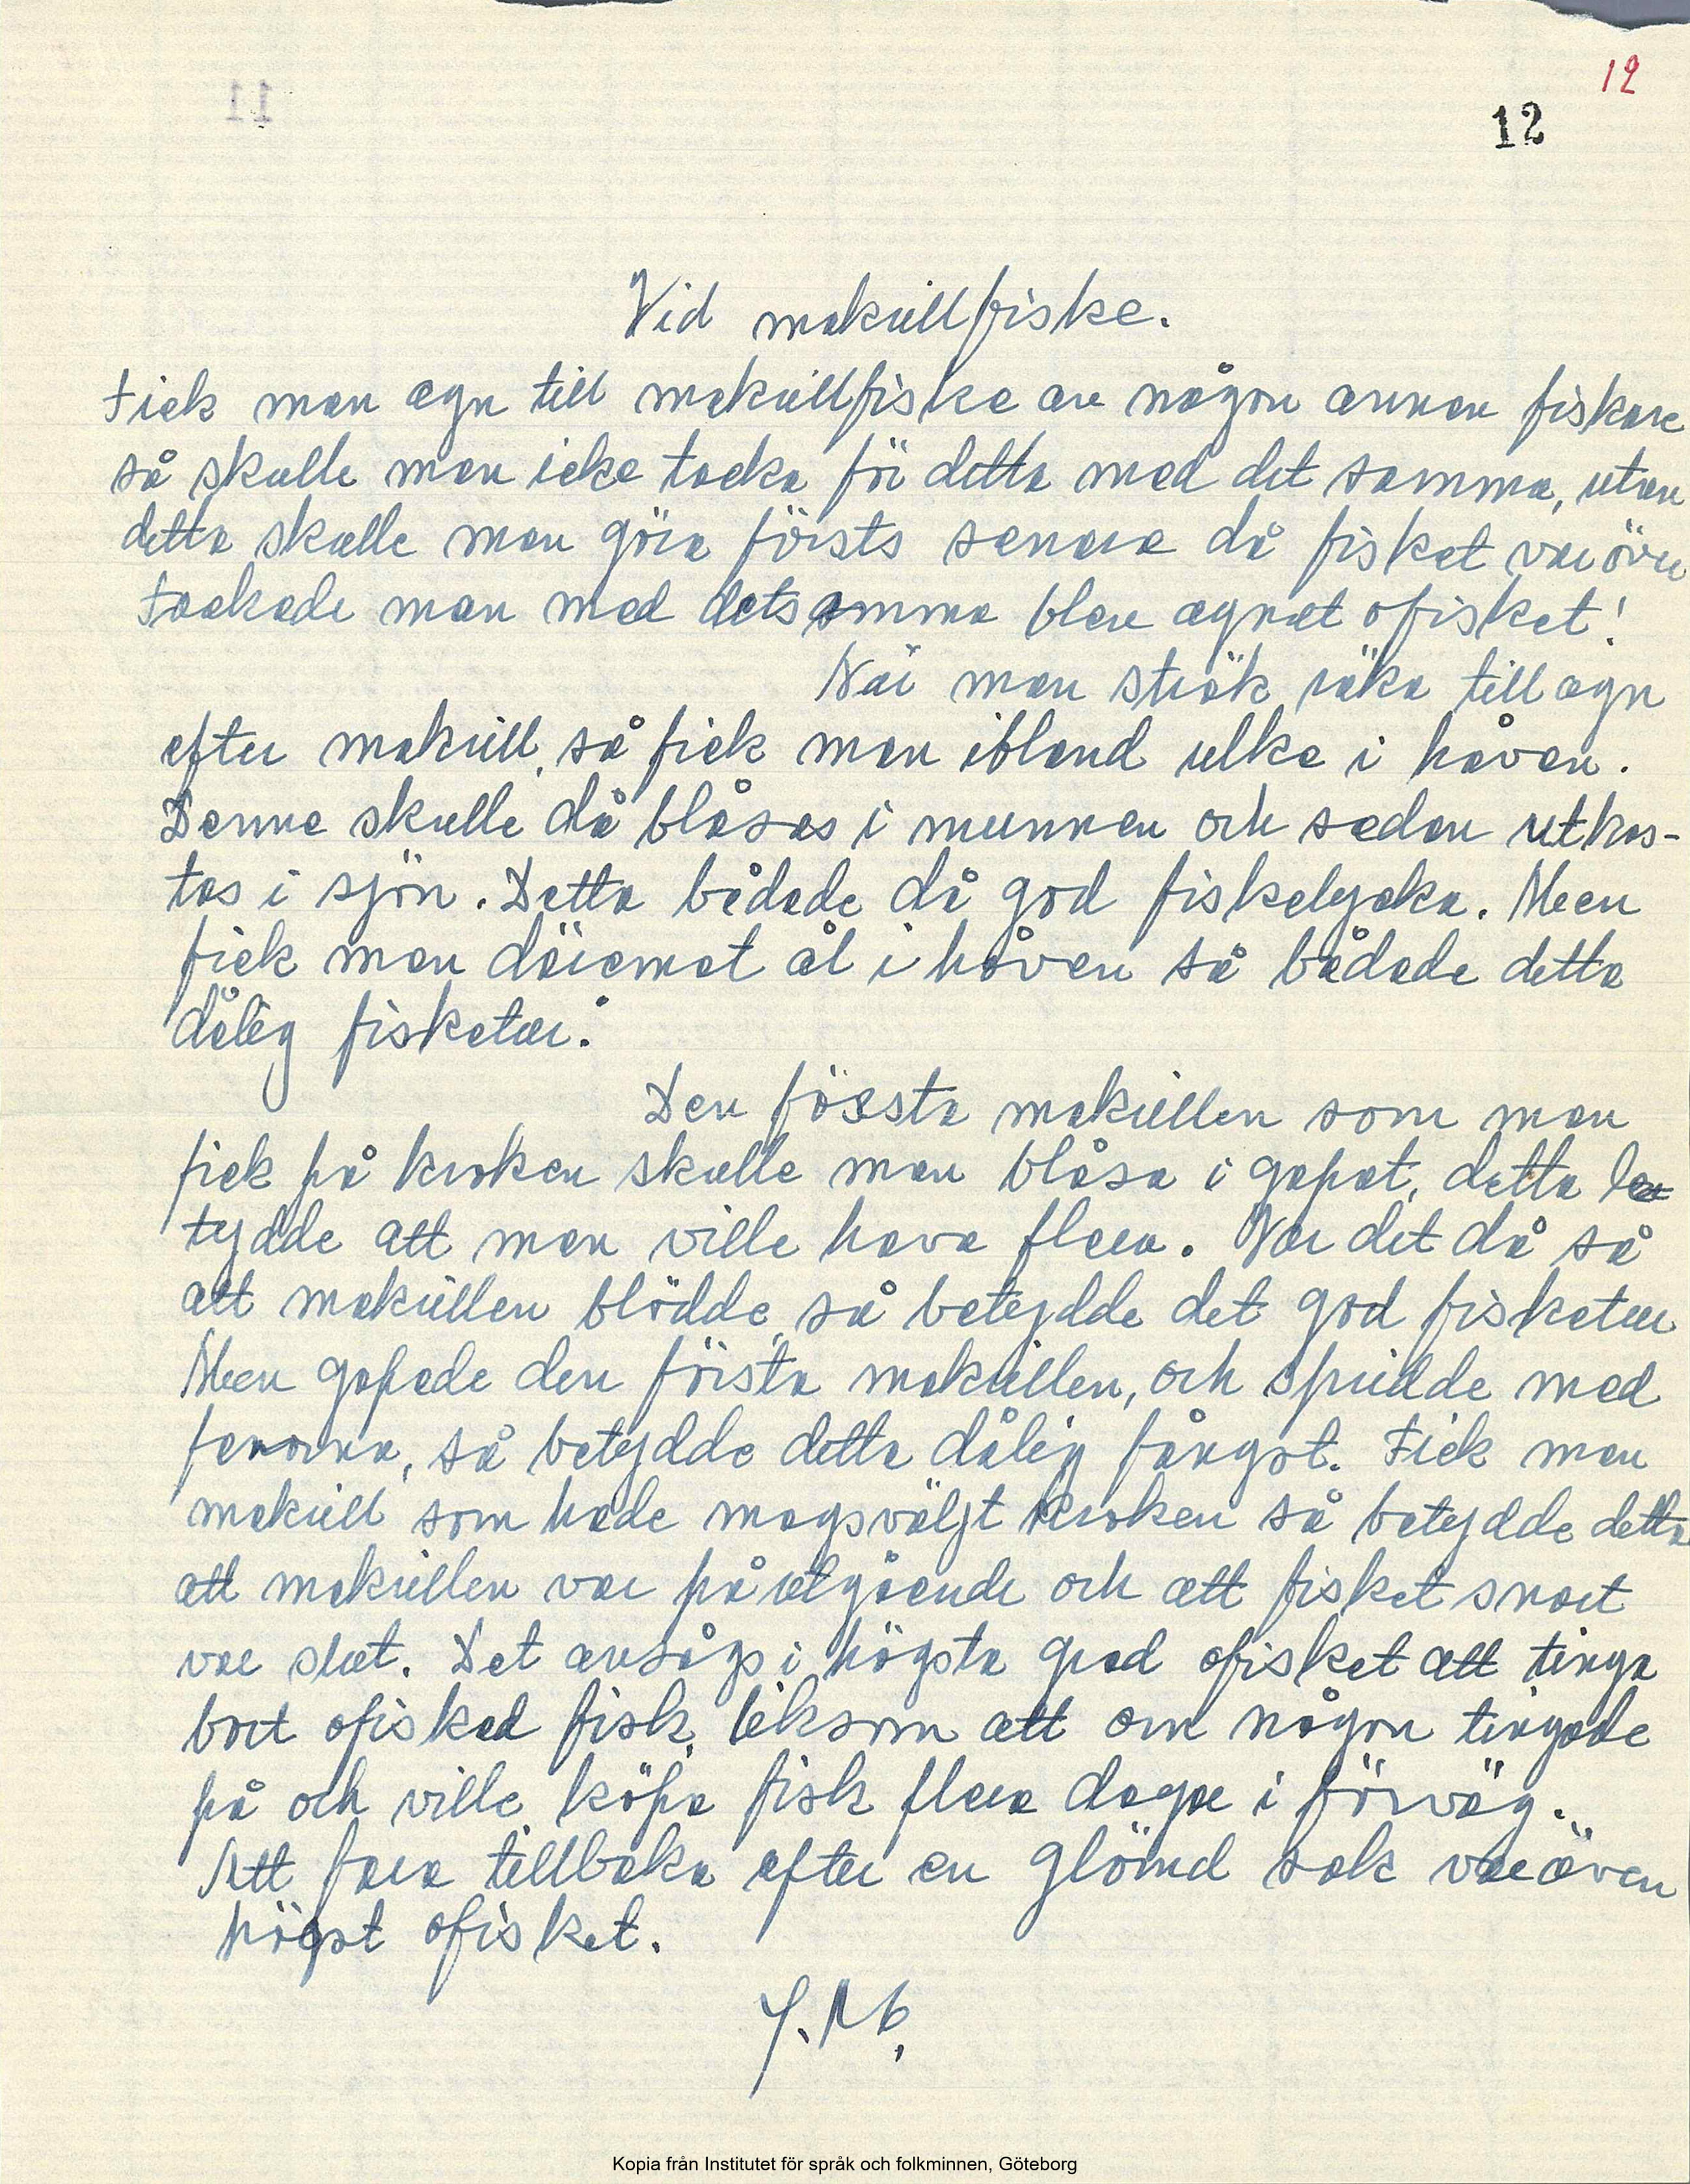 12
12
Vid makrillfiske.
Fick man agn till makrillfiske av någon annan fiskare
så skulle man icke tacka för detta med det samma, utan
detta skulle man göra försts senare då fisket var över
Tackade man med detsamma blev agnet ofisket!
När man strök räka till agn
efter makrill, så fick man ibland ulke i håven.
Denne skulle då blåsas i munnen och sedan utkas-
tas i sjön. Detta bådade då god fiskelycka. Men
fick man däremot ål i håven så bådade detta
dålig fisketur.
Den första makrillen som man
fick på kroken skulle man blåsa i gapet, detta be
tydde att man ville hava flera. Var det då så
att makrillen blödde, så betydde det god fisketur
Men gapade den första makrillen, och spridde med
fenorna, så betydde detta dålig fångst. Fick man
makrill som hade magsväljt kroken så betydde detta
att makrillen var på utgående och att fisket snart
var slut. Det ansågs i högsta grad ofisket att tinga
bort ofiskad fisk, liksom att om någon tingade
på och ville köpa fisk flera dagar i förväg.
Att fara tillbaka efter en glömd sak var även
högst ofisket.
Kopia från Institutet för språk och folkminnen, Göteborg